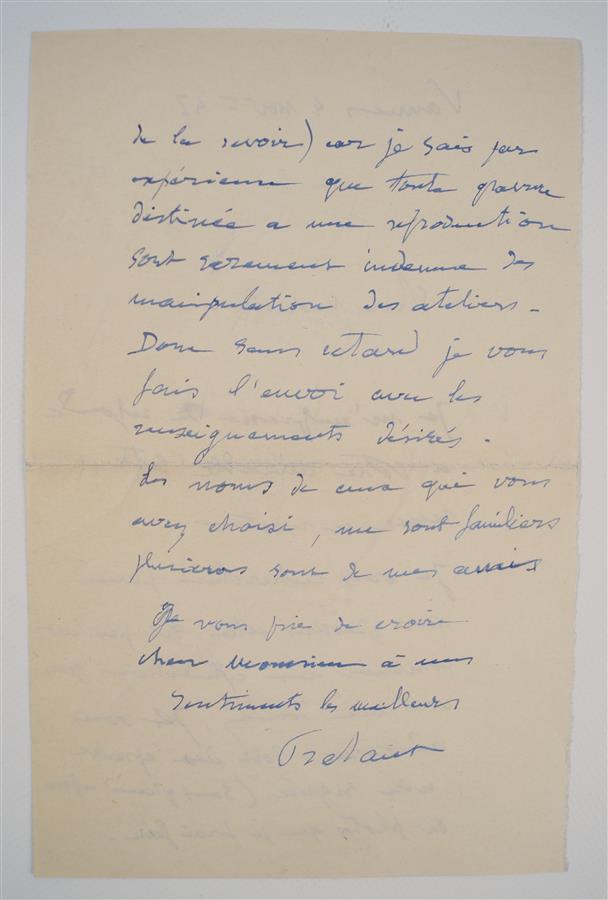 de la revoir) car je sais par
expérience que toute gravure
destinée a une reproduction
sont rarement indemne des
manipulation des ateliers -
Donc sans retard je vous
fais l'envoi avec les
renseignements désirés -
Les noms de ceux que vous
avez choisi, me sont familiers
plusieurs sont de mes amis
Je vous prie de croire
cher monsieur à mes
sentiments les meilleurs